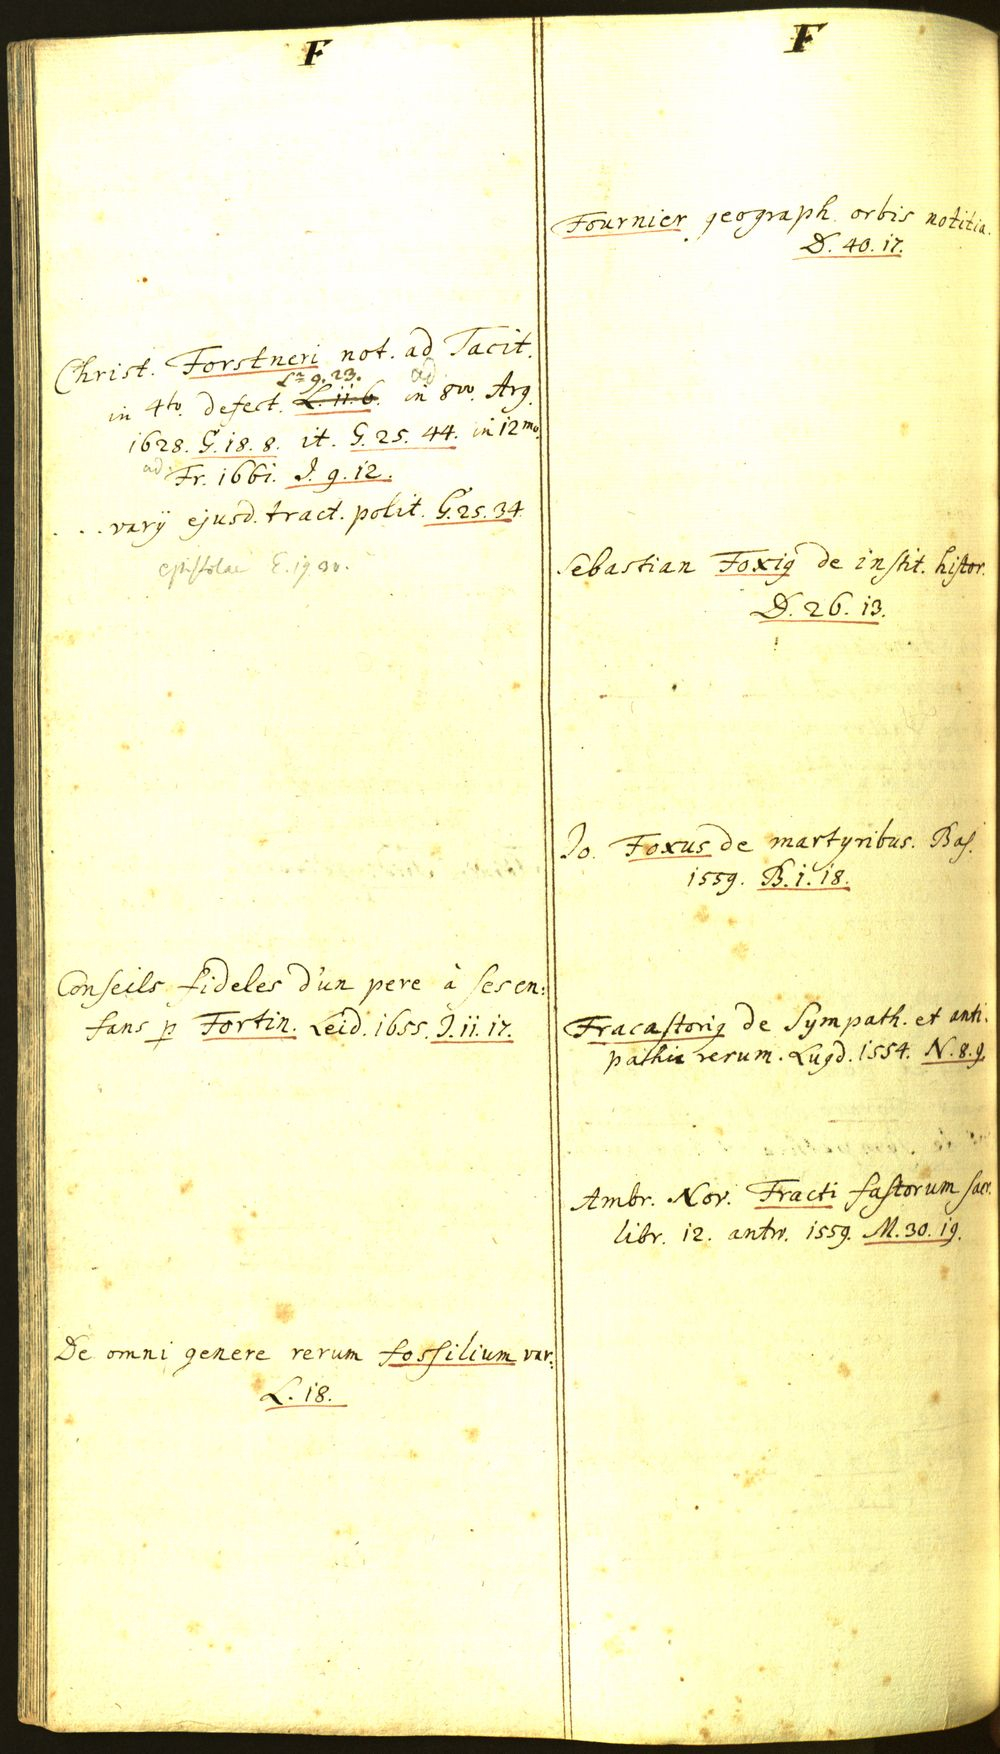 F
Christ. Forstneri not. ad Tacit.
Lr 9. 23. ad
in 4to. defect. L. ii. 6. in 8vo. Arg.
1628. G. 18. 8. it. G. 25. 44. in 12mo.
ad Fr. 1661. J. 9. 12.
... varij ejusd. tract. polit. G. 25. 34.
epistolae E. 19. 30.
Conseils fideles d'un pere à ses en:
fans p Fortin. Leid. 1655. J. ii. 17.
De omni genere rerum fossilium var:
L. 18.
F
Fournier geograph. orbis notitia.
D. 40. 17.
Sebastian Foxig de instit. histor.
D. 26. 13.
Jo. Foxus de martyribus. Bas.
1559. B. i. 18.
Fracastorig de Sympath. et anti.
pathia rerum. Lugd. 1554. N. 8. 9.
Ambr. Nov. Fracti fastorum sacr.
libr. 12. antw. 1559. M. 30. 19.